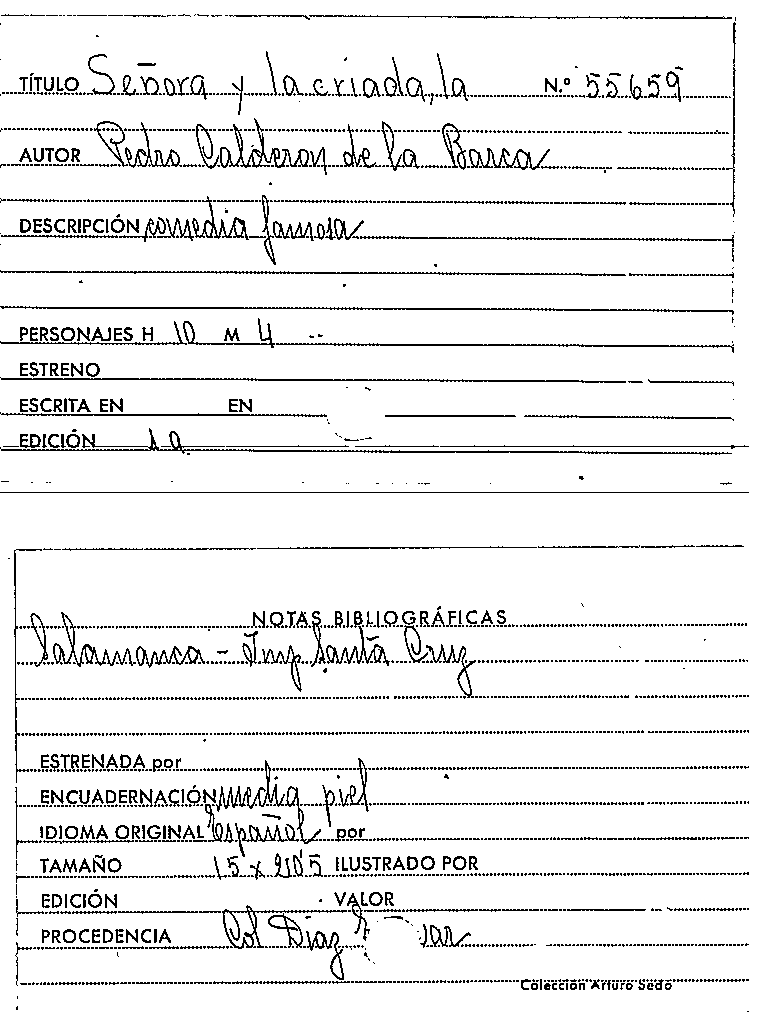 TÍTULO Señora y la criada, la N.º 55659
AUTOR Pedro Calderon de la Barca
DESCRIPCIÓN comedia famosa
PERSONAJES H 10 M 4
ESTRENO
ESCRITA EN EN
EDICIÓN 1a
NOTAS BIBLIOGRÁFICAS
Salamanca - Imp Santa Cruz
ESTRENADA por
ENCUADERNACIÓN media piel
IDIOMA ORIGINAL Español por
TAMAÑO 15 x 20'5 ILUSTRADO POR
EDICIÓN VALOR
PROCEDENCIA Col Diaz
Colección Arturo Sedó